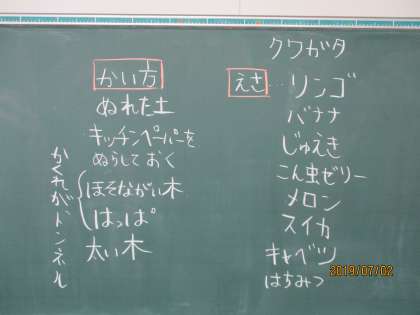 クワガタ
かい方
ぬれた土
キッチンペーパーを
ぬらしておく
ほそながい木
はっぱ
太い木
かくれがトンネル
えさ…リンゴ
バナナ
じゅえき
こん虫ゼリー
メロン
スイカ
キャベツ
はちみつ
2019/07/02